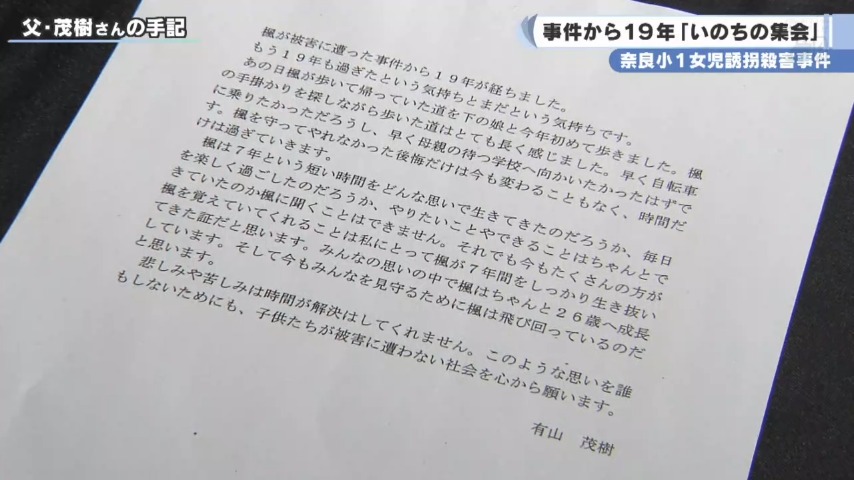 父・茂樹さんの手記
事件から19年「いのちの集会」
奈良小1女児誘拐殺害事件
楓が被害に遭った事件から１９年が経ちました。
もう１９年も過ぎたという気持ちとまだという気持ちです。
あの日楓が歩いて帰っていた道を下の娘と今年初めて歩きました。楓
の手掛かりを探しながら歩いた道はとても長く感じました。早く自転車
に乗りたかっただろうし、早く母親の待つ学校へ向かいたかったはずで
す。楓を守ってやれなかった後悔だけは今も変わることもなく、時間だ
けは過ぎていきます。
楓は７年という短い時間をどんな思いで生きてきたのだろうか、毎日
を楽しく過ごしたのだろうか、やりたいことやできることはちゃんとで
きていたのか楓に聞くことはできません。それでも今もたくさんの方が
楓を覚えていてくれることは私にとって楓が７年間をしっかり生き抜い
てきた証だと思います。みんなの思いの中で楓はちゃんと２６歳へ成長
しています。そして今もみんなを見守るために楓は飛び回っているのだ
と思います。
悲しみや苦しみは時間が解決はしてくれません。このような思いを誰
もしないためにも、子供たちが被害に遭わない社会を心から願います。
有山　茂樹